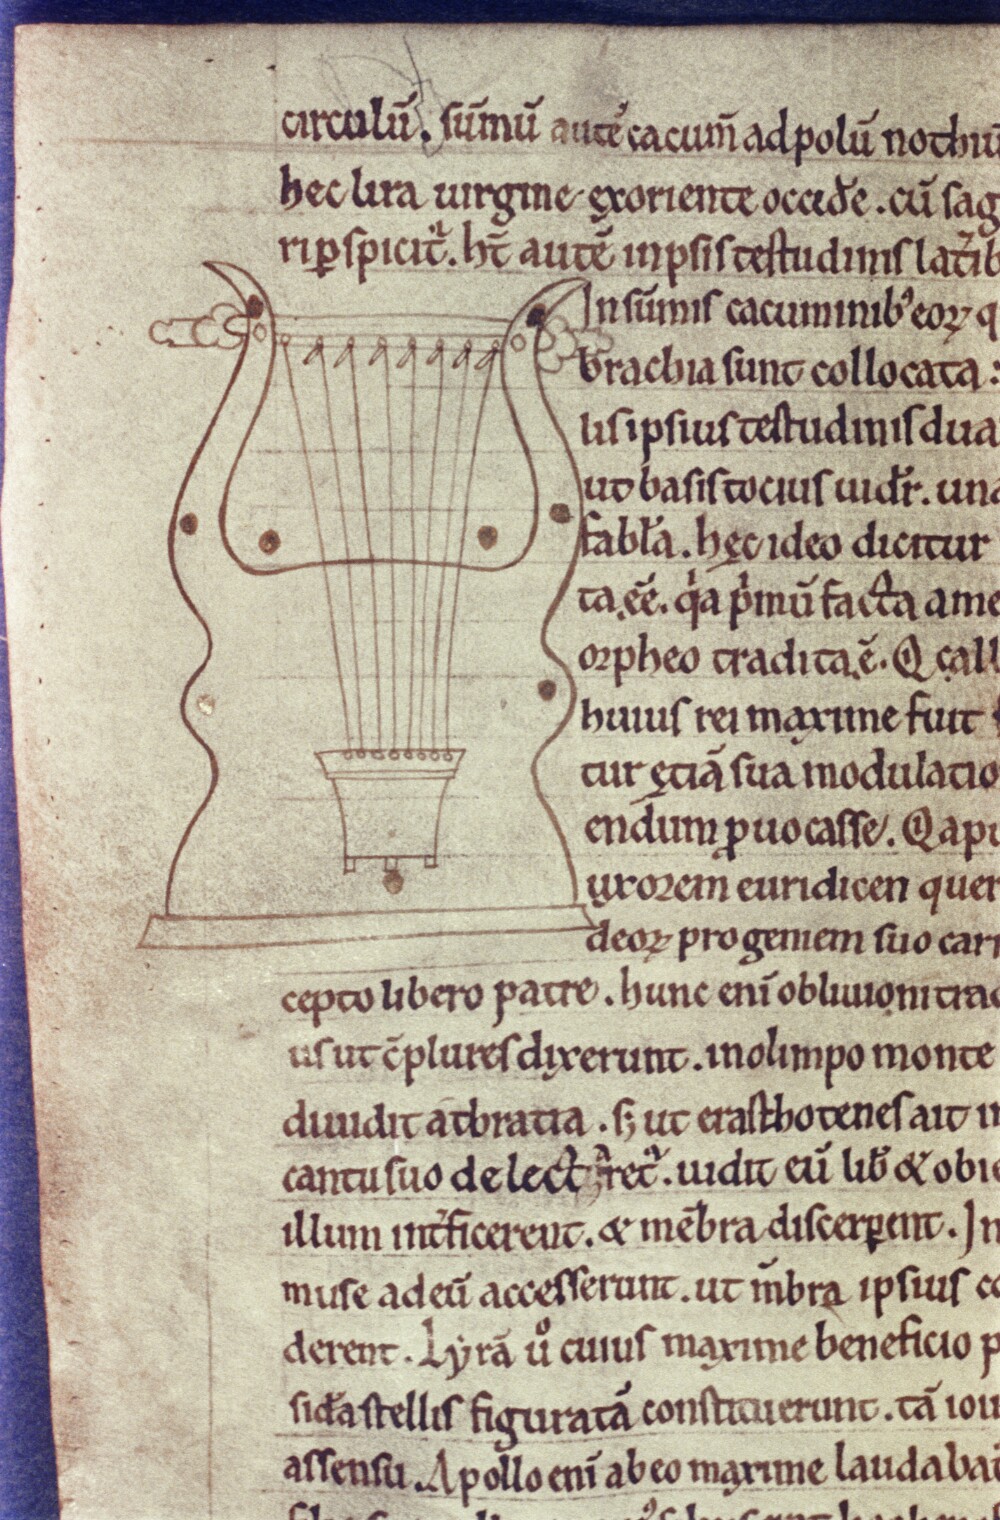 circulū. sūmū autē cacum̄ ad polū nothū
hec lira uirgine exoriente occidē. cū sag
rip̱spicit᷑. ht̄ autē inpsis testudinis lat̄ib
In sūmis cacuminib᾽ eoꝝ q
brachia sunt collocata :
lis ipsius testudinis dua
ut basis tocius uid᷑r. una
fabl̄a. hęc ideo dicitur
ta ēē. q̇a p̄mū facta ame
orpheo tradita ē. Q call
huius rei maxime fuit
tur ęciā sua modulatio
endum ꝑuocasse. Q apu
uxorem euridicen quer
deoꝝ progeniem suo carm
cepto libero patre. hunc enī obliuioni trad
us ut cp̄lures dixerunt. in olimpo monte
diuidit a tbratia. s; ut erasthotenes ait in
cantu suo delectᷓret᷑. uidit eū lib̄ & obie
illum int̄ficerent. & mēbra discerꝑent. In
muse ad eū accesserunt. ut m̄bra ipsius co
derent. Lyrā uͦ cuius maxime beneficio p
sid̄a stellis figuratā constituerunt. tā ioui
assensu. Apollo enī ab eo maxime laudabat